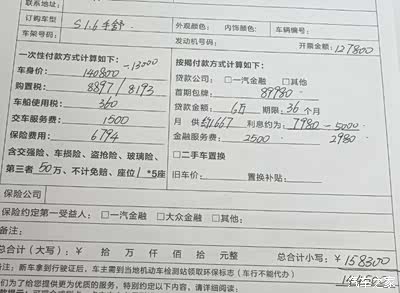 联系地址:
订购车型 S1.6手舒 外观颜色: 内饰颜色: 车辆编号:
车架号码: 发动机号码: 开票金额: 127800
一次性付款方式计算如下: -13000
车身价: 140800
购置税: 8897/8193
车船使用税: 360
交车服务费: 1500
保险费用: 6794
含交强险、车损险、盗抢险、玻璃险、
第三者50万、不计免赔、座位1*5座
按揭付款方式计算如下:
贷款公司: □一汽金融 □其他
首期包牌:
贷款金额: 6万 期限: 36 个月
月 供 约1667 利息约为: 7980-5000
金融服务费: 2500 2980
□二手车置换
旧车价: 置换补贴:
保险公司
保险约定第一受益人: □一汽金融 □大众金融 □其他:
备注:
总合计(大写): ¥ 拾 万 仟 佰 拾 元整 总合计小写: ¥ 158300
备注: 新车拿到行驶证后, 车主需到当地机动车检测站领取环保标志(车行不能代办)
们为了给您提供更为优质的服务, 特别约定以下内容, 请详细阅读:
汽车之家